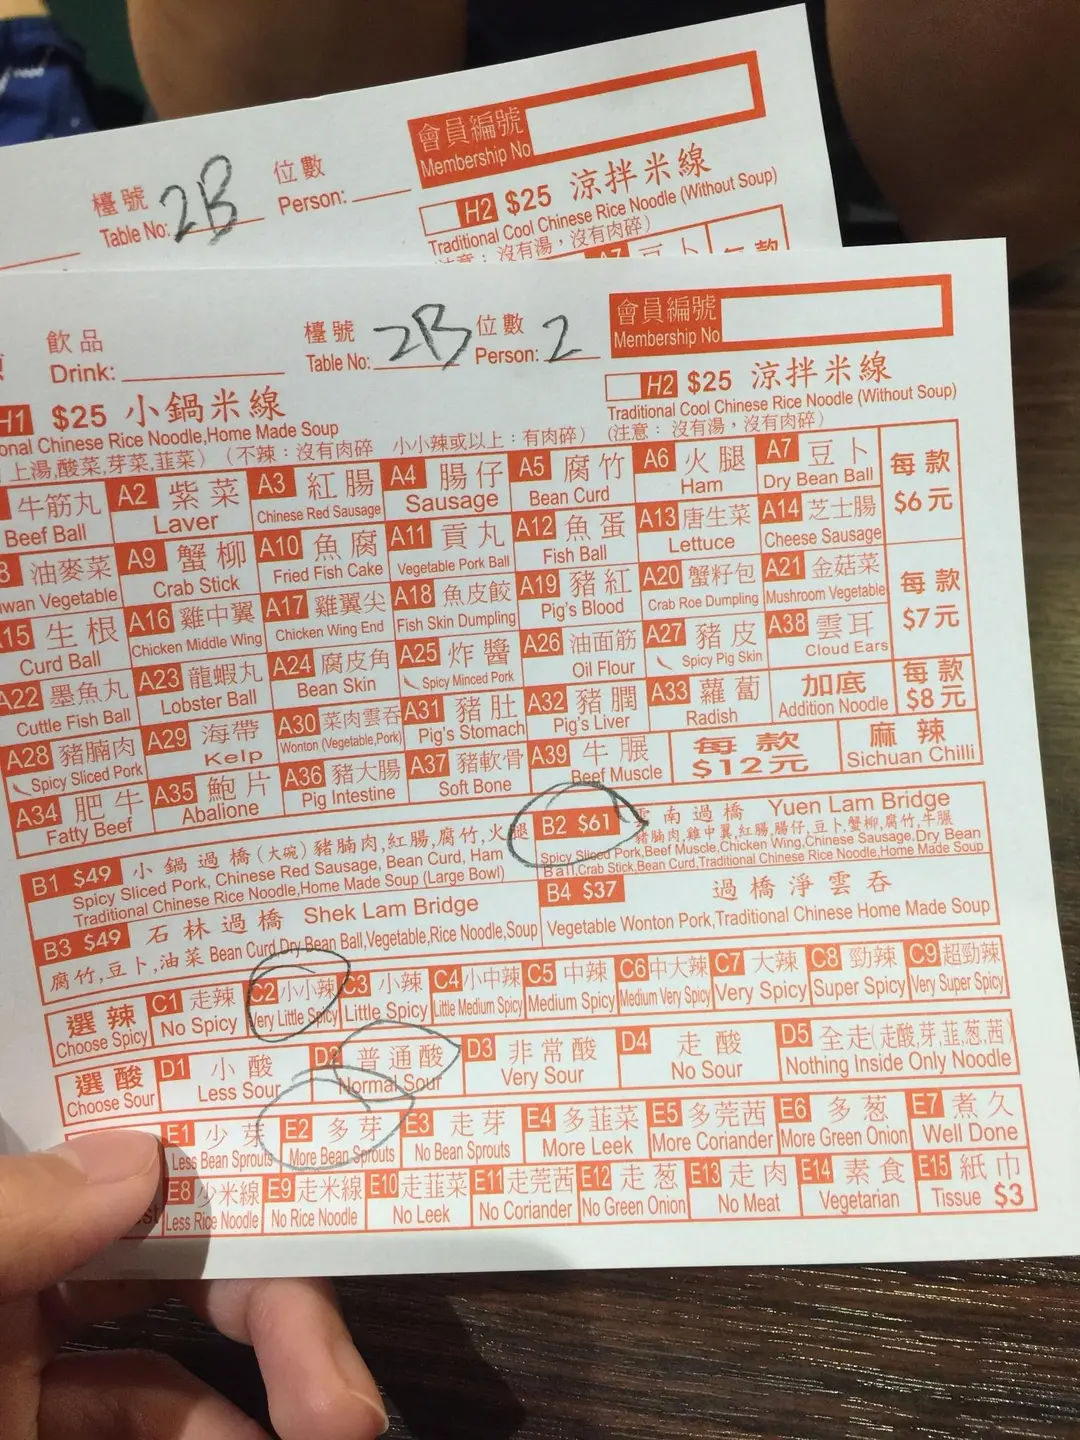 會員編號
Membership No
檯號
Table No: 2B
位數
Person:
H2 $25 涼拌米線
Traditional Cool Chinese Rice Noodle (Without Soup)
沒有湯,沒有肉碎)
A7 豆卜 每款
飲品
Drink:
檯號
Table No: 2B
位數
Person: 2
會員編號
Membership No
H1 $25 小鍋米線
onal Chinese Rice Noodle,Home Made Soup
上湯,酸菜,芽菜,韭菜) (不辣:沒有肉碎 小小辣或以上:有肉碎)
H2 $25 涼拌米線
Traditional Cool Chinese Rice Noodle (Without Soup)
(注意: 沒有湯,沒有肉碎)
牛筋丸 A2 紫菜 A3 紅腸 A4 腸仔 A5 腐竹 A6 火腿 A7 豆卜 每款
Beef Ball Laver Chinese Red Sausage Sausage Bean Curd Ham Dry Bean Ball $6元
8 油麥菜 A9 蟹柳 A10 魚腐 A11 貢丸 A12 魚蛋 A13 唐生菜 A14 芝士腸
iwan Vegetable Crab Stick Fried Fish Cake Vegetable Pork Ball Fish Ball Lettuce Cheese Sausage
A15 生根 A16 雞中翼 A17 雞翼尖 A18 魚皮餃 A19 豬紅 A20 蟹籽包 A21 金菇菜 每款
Curd Ball Chicken Middle Wing Chicken Wing End Fish Skin Dumpling Pig's Blood Crab Roe Dumpling Mushroom Vegetable $7元
A22 墨魚丸 A23 龍蝦丸 A24 腐皮角 A25 炸醬 A26 油面筋 A27 豬皮 A38 雲耳
Cuttle Fish Ball Lobster Ball Bean Skin Spicy Minced Pork Oil Flour Spicy Pig Skin Cloud Ears
A28 豬腩肉 A29 海帶 A30 菜肉雲吞 A31 豬肚 A32 豬膶 A33 蘿蔔 加底 每款
Spicy Sliced Pork Kelp Wonton (Vegetable,Pork) Pig's Stomach Pig's Liver Radish Addition Noodle $8元
A34 肥牛 A35 鮑片 A36 豬大腸 A37 豬軟骨 A39 牛𦟌 每款 麻辣
Fatty Beef Abalione Pig Intestine Soft Bone Beef Muscle $12元 Sichuan Chilli
B1 $49 小鍋過橋(大碗)豬腩肉,紅腸,腐竹,火腿
Spicy Sliced Pork, Chinese Red Sausage, Bean Curd, Ham
Traditional Chinese Rice Noodle,Home Made Soup (Large Bowl)
B2 $61 雲南過橋 Yuen Lam Bridge
豬腩肉,雞中翼,紅腸,腸仔,豆卜,蟹柳,腐竹,牛𦟌
Spicy Sliced Pork,Beef Muscle,Chicken Wing,Chinese Sausage,Dry Bean
Ball,Crab Stick,Bean Curd,Traditional Chinese Rice Noodle,Home Made Soup
B3 $49 石林過橋 Shek Lam Bridge
腐竹,豆卜,油菜 Bean Curd,Dry Bean Ball,Vegetable,Rice Noodle,Soup
B4 $37 過橋淨雲吞
Vegetable Wonton Pork,Traditional Chinese Home Made Soup
選辣 C1 走辣 C2 小小辣 C3 小辣 C4 小中辣 C5 中辣 C6 中大辣 C7 大辣 C8 勁辣 C9 超勁辣
Choose Spicy No Spicy Very Little Spicy Little Spicy Little Medium Spicy Medium Spicy Medium Very Spicy Very Spicy Super Spicy Very Super Spicy
選酸 D1 小酸 D2 普通酸 D3 非常酸 D4 走酸 D5 全走(走酸,芽,韭,葱,茜)
Choose Sour Less Sour Normal Sour Very Sour No Sour Nothing Inside Only Noodle
E1 少芽 E2 多芽 E3 走芽 E4 多韮菜 E5 多莞茜 E6 多葱 E7 煮久
Less Bean Sprouts More Bean Sprouts No Bean Sprouts More Leek More Coriander More Green Onion Well Done
E8 少米線 E9 走米線 E10 走韮菜 E11 走莞茜 E12 走葱 E13 走肉 E14 素食 E15 紙巾
Less Rice Noodle No Rice Noodle No Leek No Coriander No Green Onion No Meat Vegetarian Tissue $3